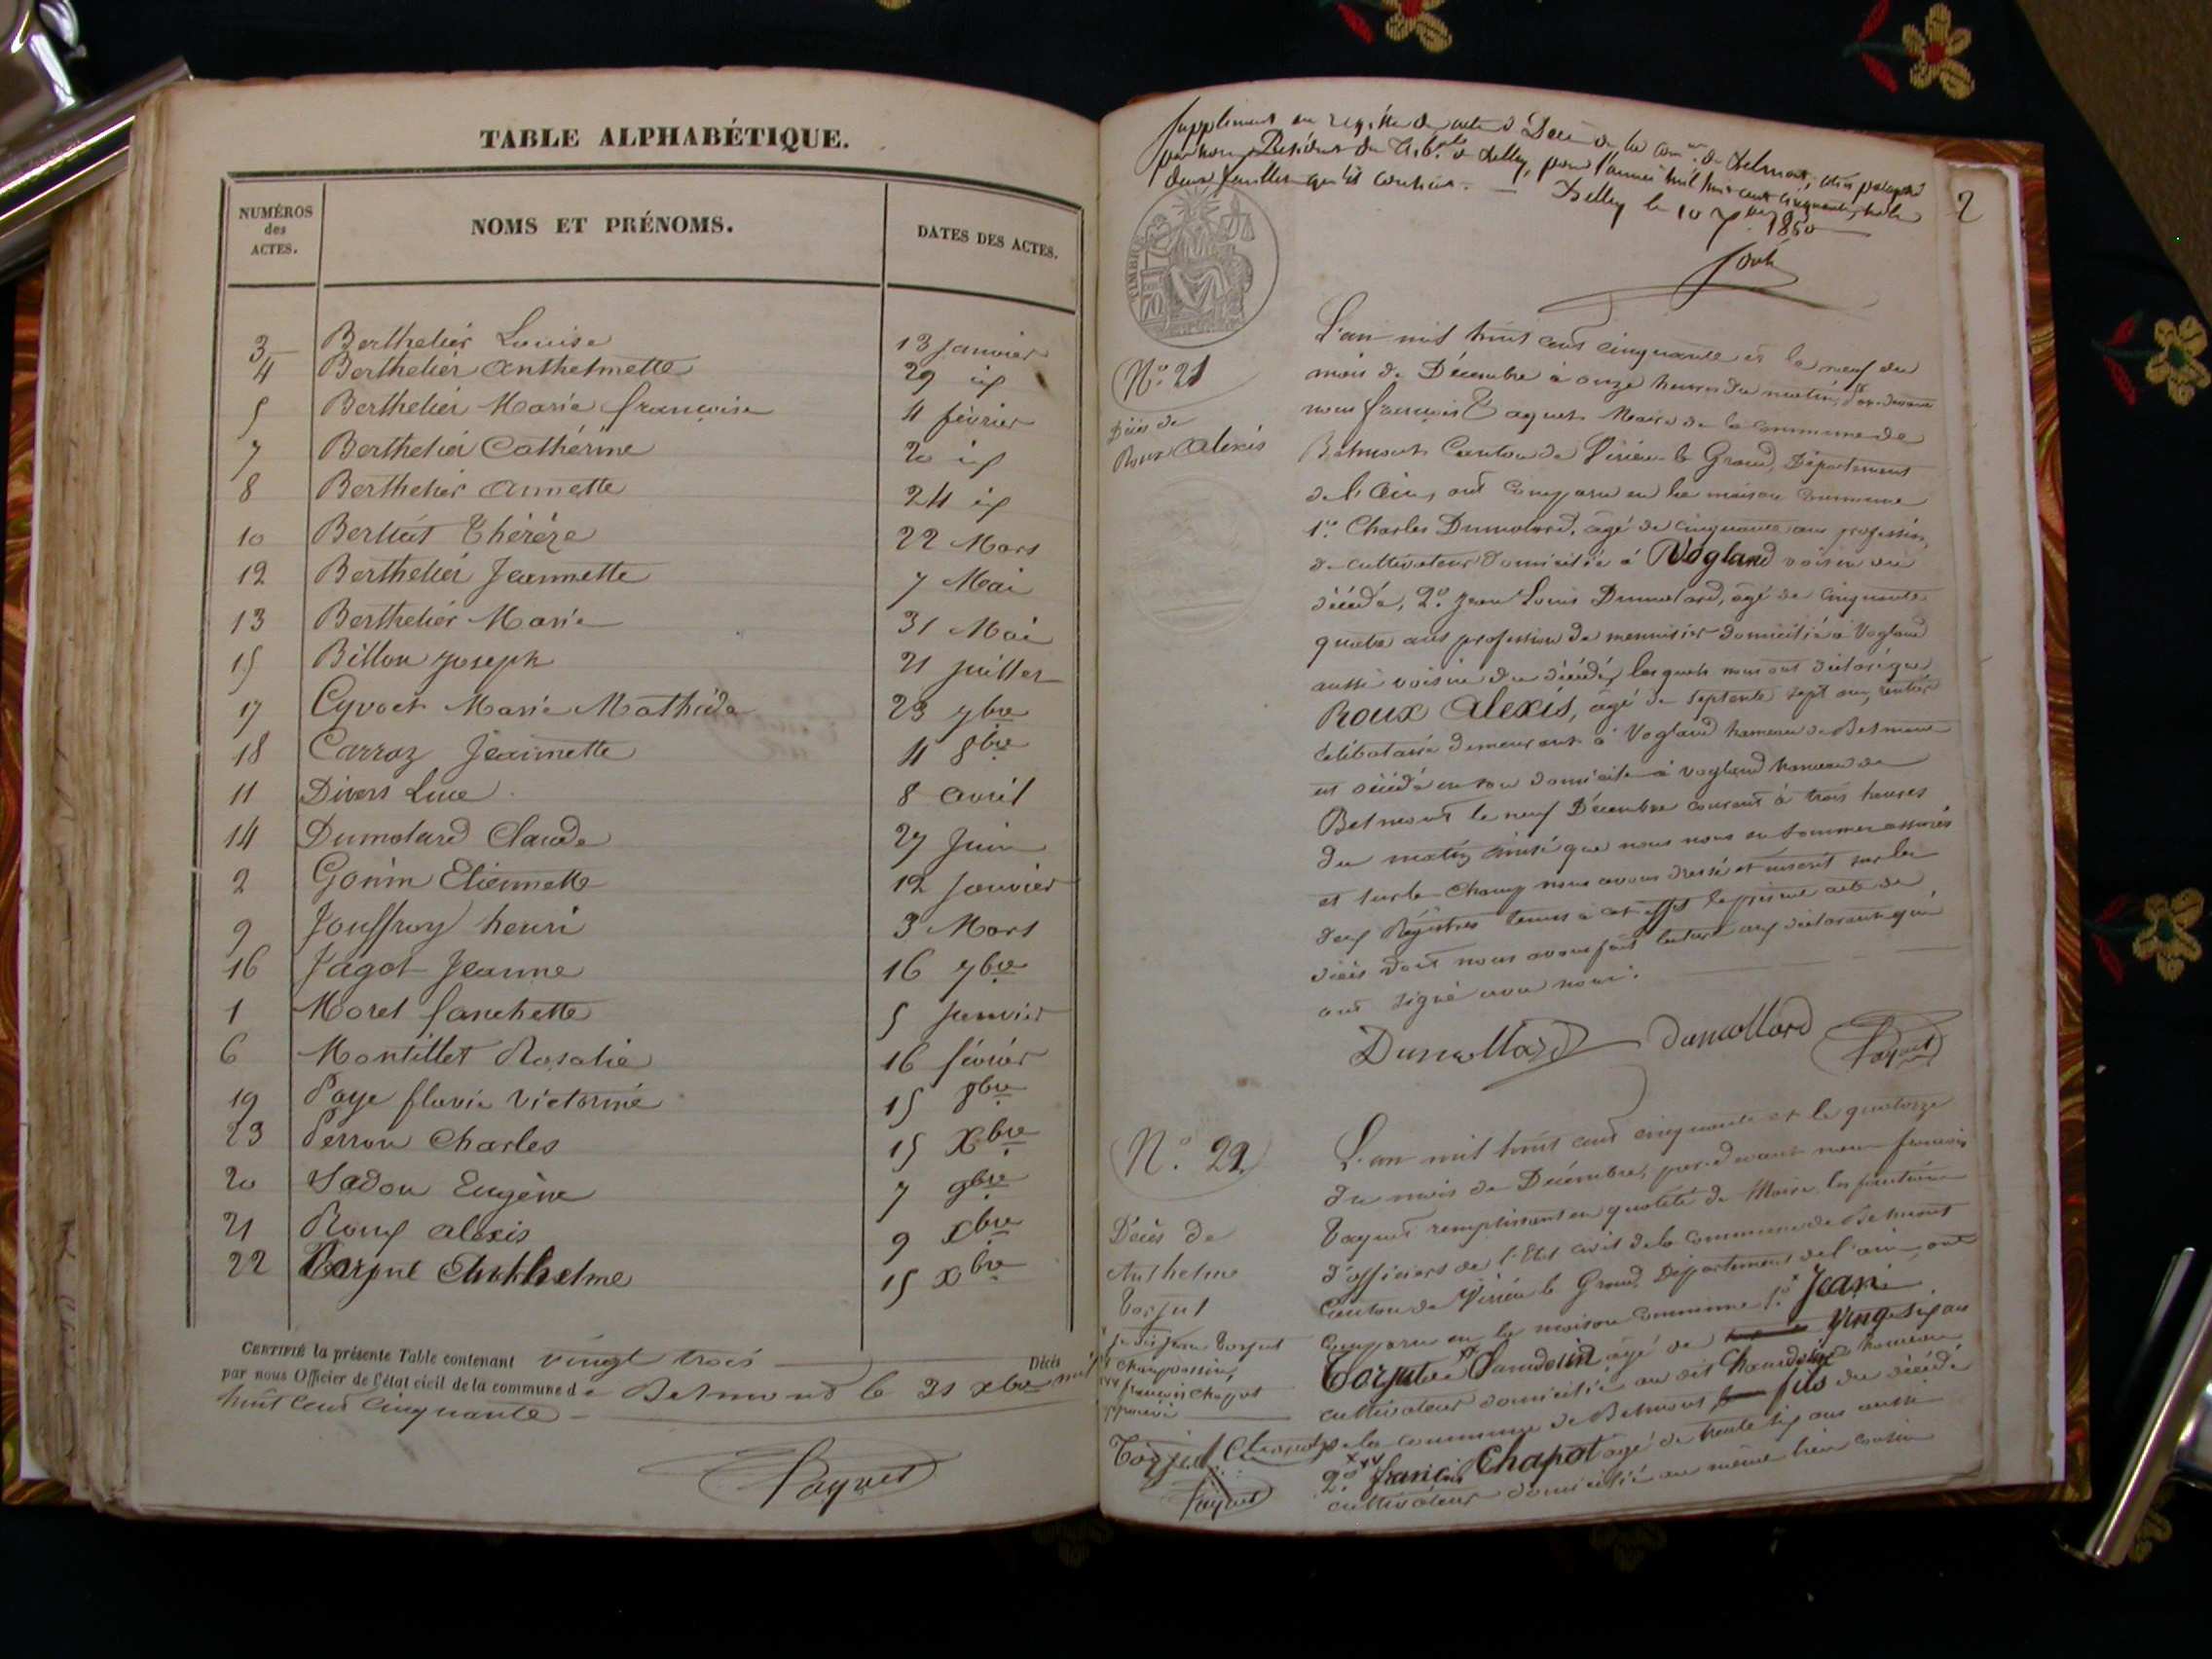 TABLE ALPHABÉTIQUE.
NUMÉROS des ACTES.
NOMS ET PRÉNOMS.
DATES DES ACTES.
3 Berthelier Louise 13 Janvier
4 Berthelier Anthelmette 29 id
5 Berthelier Marie françoise 4 février
7 Berthelier Cathérine 20 id
8 Berthelier Annette 24 id
10 Berthet Thérèze 22 Mars
12 Berthelier Jeannette 7 Mai
13 Berthelier Marie 31 Mai
15 Billon Joseph 21 juillet
17 Cyvoct Marie Mathilde 23 7bre
18 Carraz Jeannette 4 8bre
11 Divers Luce 8 avril
14 Dumolard Claude 27 Juin
2 Gonin Etiennette 12 Janvier
9 Jouffroy henri 3 Mars
16 Jagot Jeanne 16 7bre
1 Moret fanchette 5 Janvier
6 Montillet Rosalie 16 février
19 Paye flavie Victorine 15 8bre
23 Perron Charles 15 Xbre
20 Sadou Eugène 7 9bre
21 Roux alexis 9 Xbre
22 Torjut Anthelme 15 Xbre
CERTIFIÉ la présente Table contenant vingt trois Décès
par nous Officier de l'état civil de la commune de Belmont le 31 Xbre mil
huit cent cinquante
Paquet
Supplément au registre des actes de Décès de la comne de Belmont,
par nous Président du de Belley, pour l'année mil huit cent cinquante,
deux feuilles qu'il contient. Belley le 10 1850
2
TIMBRE
N.° 21
Décès de
Roux Alexis
L'an mil huit cent cinquante et le neuf du
mois de Décembre à onze heures du matin, par-devant
nous françois Paquet Maire de la commune de
Belmont Canton de Virieu le Grand, Département
de l'Ain, ont comparu en la maison commune
1.° Charles Dumolard, âgé de cinquante ans profession
de cultivateur domicilié à Vogland voisin du
décédé, 2.° Jean Louis Dumolard, âgé de cinquante
quatre ans profession de menuisier domicilié à Vogland
aussi voisin du décédé, lesquels nous ont déclaré que
Roux Alexis, âgé de septente sept ans, rentier
célibataire demeurant à Vogland hameau de Belmont
est décédé en son domicile à Vogland hameau de
Belmont le neuf Décembre courant à trois heures
du matin ainsi que nous nous en sommes assurés
et sur le champ nous avons dressé et inscrit sur les
deux Régistres tenus à cet effet le présent acte de
décès dont nous avons fait lecture aux déclarants qui
ont signé avec nous.
Dumollard Dumollard Paquet
N.° 22
Décès de
Anthelme
Torjut
L'an mil huit cent cinquante et le quatorze
du mois de Décembre, par-devant nous françois
Paquet remplissant en qualité de Maire les fonctions
d'officier de l'Etat civil de la commune de Belmont
Canton de Virieu le Grand, Département de l'ain, ont
comparu en la maison commune 1.° Jean
Torjut âgé de vingt six ans
cultivateur domicilié au dit hameau
de la commune de Belmont fils du décédé
2.° françois Chapot âgé de trente six ans aussi
cultivateur domicilié au même lieu cousin
françois chapot
Torjut Chapot
Paquet